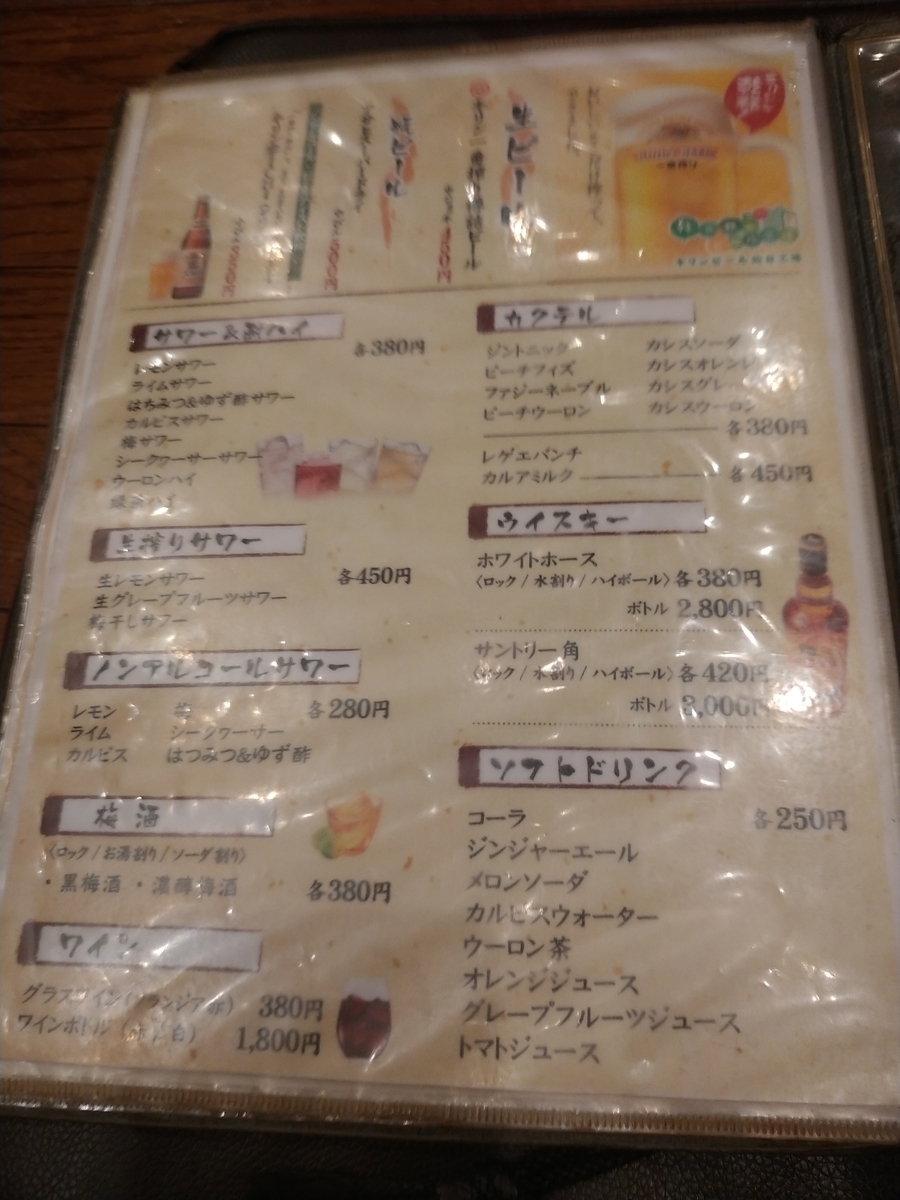 生ビール
キリンビール仙台工場
サワー&酎ハイ
各380円
レモンサワー
ライムサワー
はちみつ&ゆず酢サワー
カルピスサワー
梅サワー
シークヮーサーサワー
ウーロンハイ
緑茶ハイ
生搾りサワー
生レモンサワー 各450円
生グレープフルーツサワー
梅干しサワー
ノンアルコールサワー
レモン 梅 各280円
ライム シークヮーサー
カルピス はつみつ&ゆず酢
梅酒
〈ロック/お湯割り/ソーダ割り〉
・黒梅酒 ・濃醇梅酒 各380円
ワイン
グラスワイン 380円
ワインボトル(赤/白) 1,800円
カクテル
ジントニック カレスソーダ
ピーチフィズ カレスオレンジ
ファジーネーブル カレスグレ
ピーチウーロン カレスウーロン
各380円
レゲエパンチ
カルアミルク 各450円
ウイスキー
ホワイトホース
〈ロック/水割り/ハイボール〉各380円
ボトル 2,800円
サントリー角
〈ロック/水割り/ハイボール〉各420円
ボトル 3,000円
ソフトドリンク
コーラ 各250円
ジンジャーエール
メロンソーダ
カルピスウォーター
ウーロン茶
オレンジジュース
グレープフルーツジュース
トマトジュース